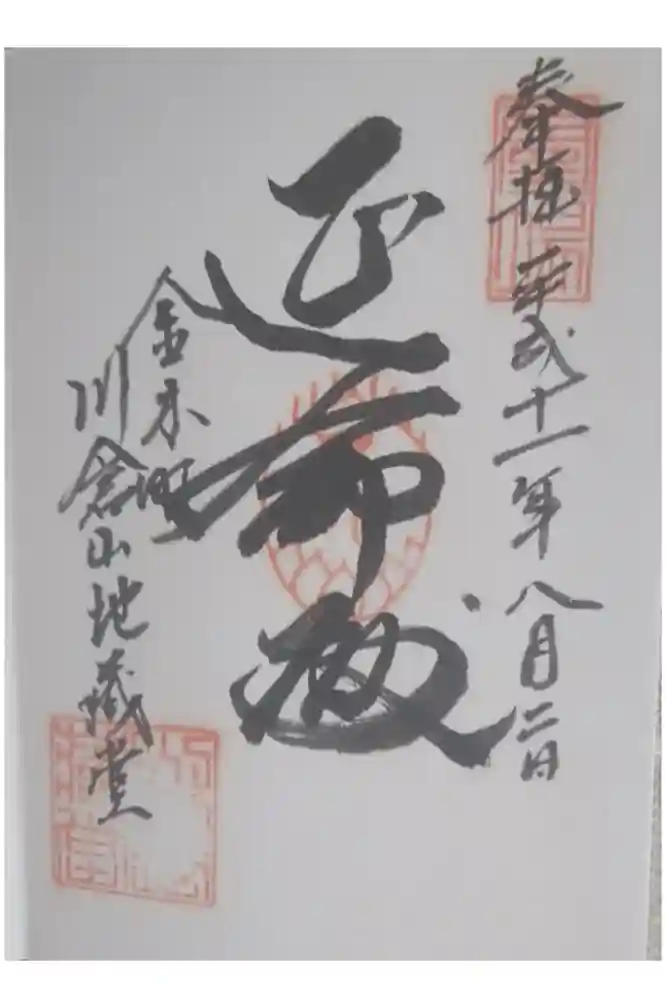 奉拝 平成十一年八月二日
延命蔵
金木町
川倉山地蔵堂